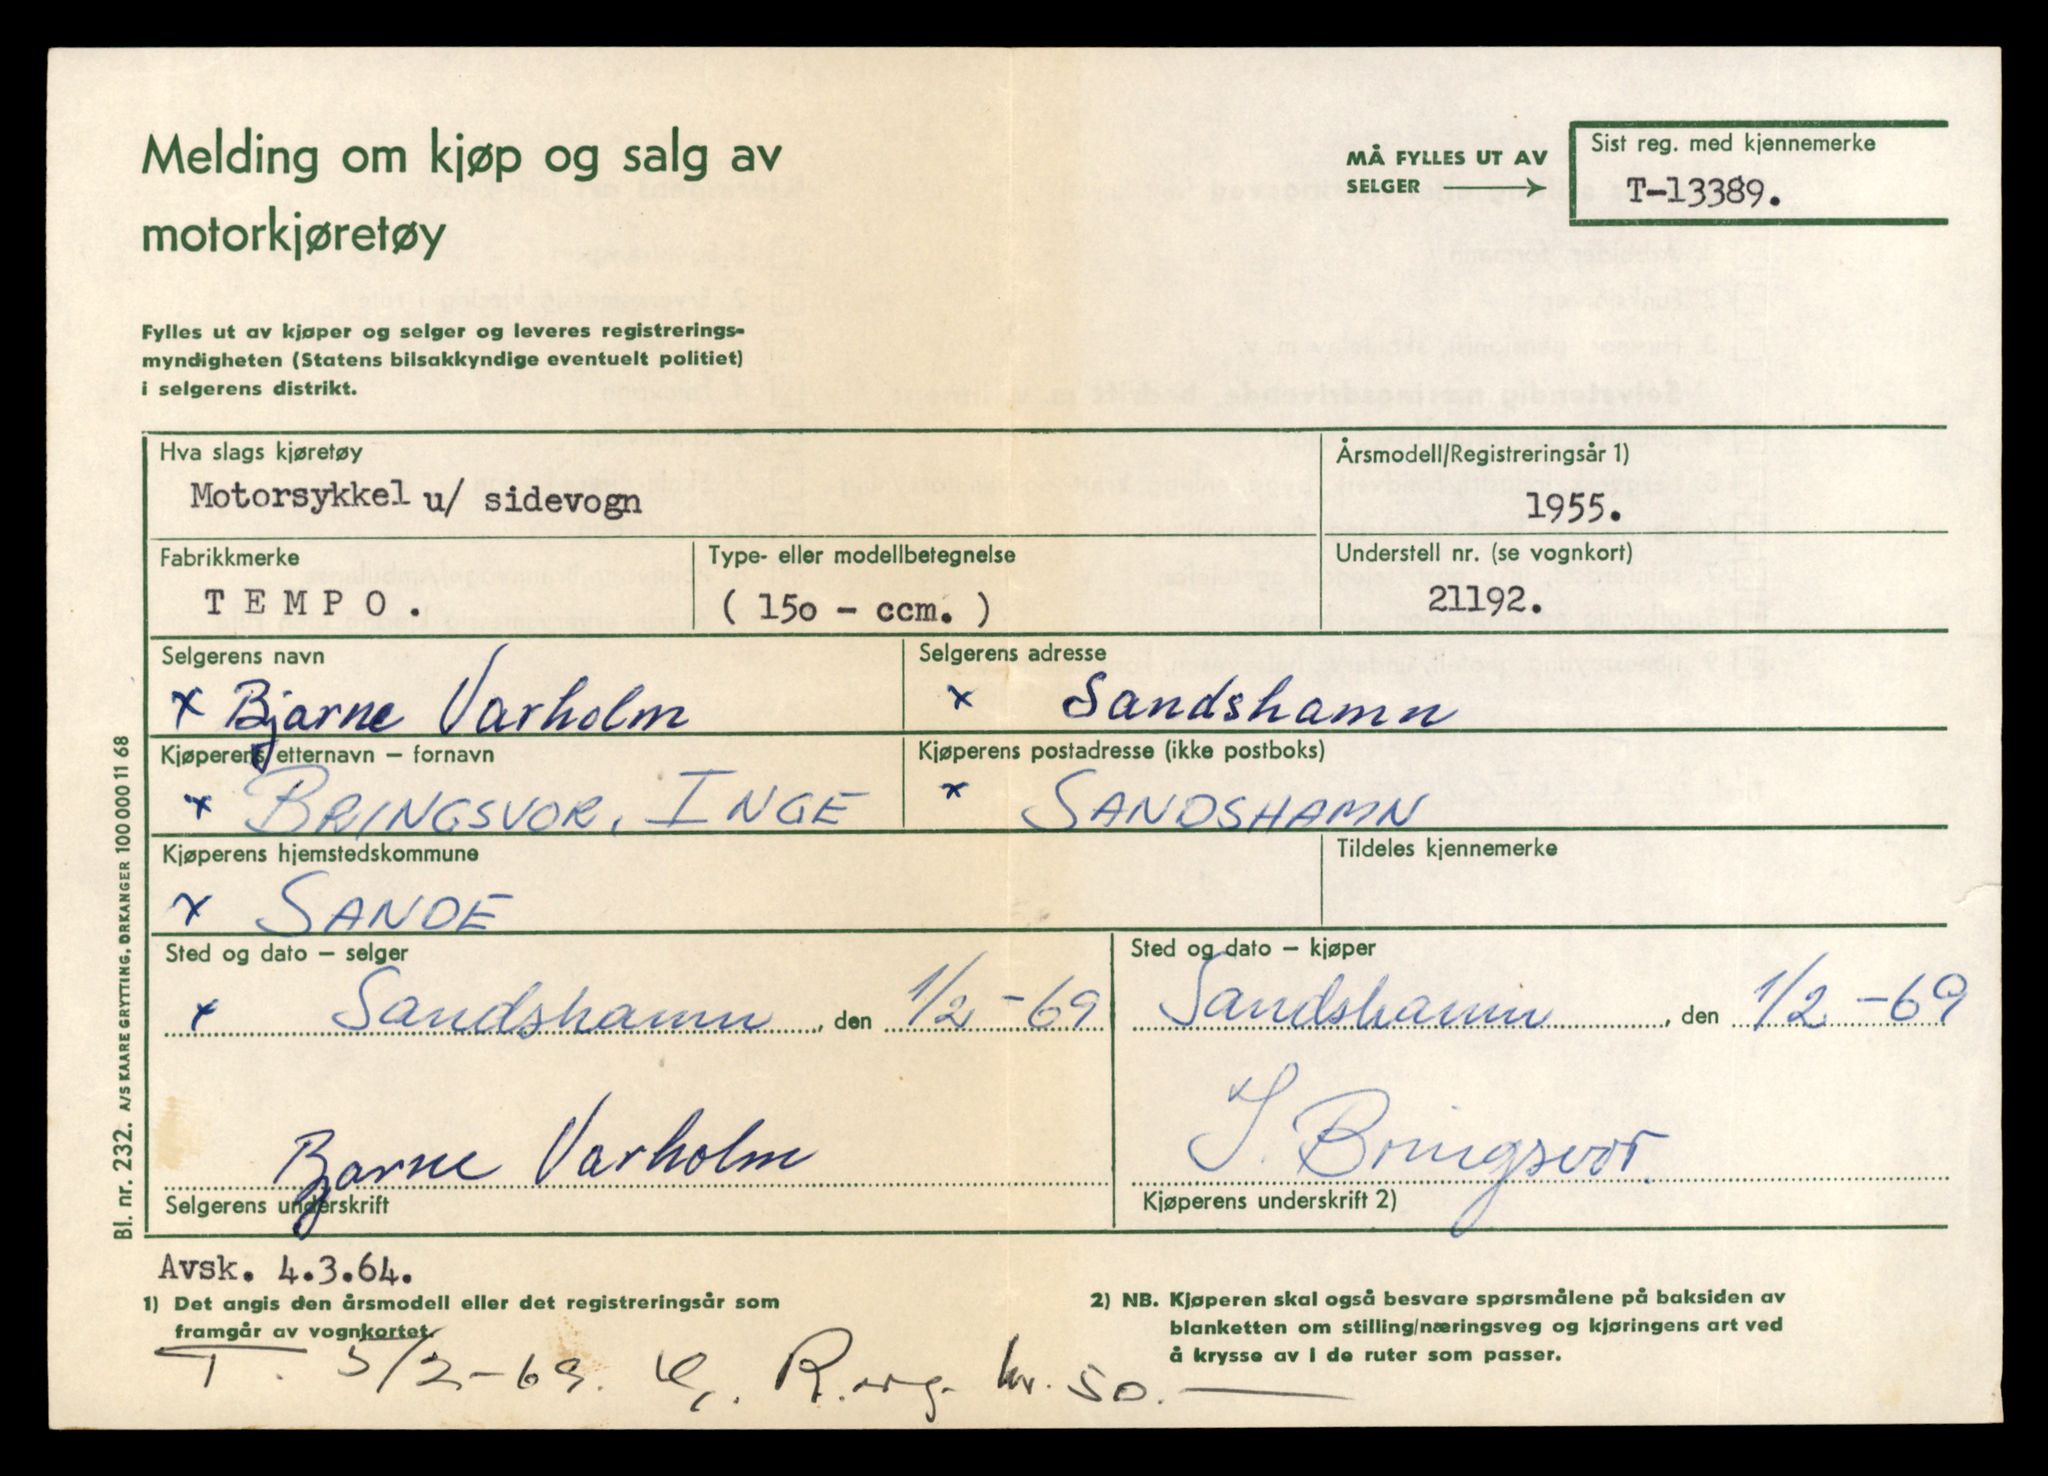 Melding om kjøp og salg av
motorkjøretøy
MÅ FYLLES UT AV
SELGER
Sist reg. med kjennemerke
T-13389.
Fylles ut av kjøper og selger og leveres registrerings-
myndigheten (Statens bilsakkyndige eventuelt politiet)
i selgerens distrikt.
Hva slags kjøretøy
Motorsykkel u/ sidevogn
Årsmodell/Registreringsår 1)
1955.
Fabrikkmerke
TEMPO.
Type- eller modellbetegnelse
( 15o - ccm. )
Understell nr. (se vognkort)
21192.
Selgerens navn
x Bjarne Varholm
Selgerens adresse
x Sandshamn
Kjøperens etternavn – fornavn
x BRINGSVOR, INGE
Kjøperens postadresse (ikke postboks)
x SANDSHAMN
Kjøperens hjemstedskommune
x SANDE
Tildeles kjennemerke
Sted og dato – selger
x Sandshamn, den 1/2-69
Sted og dato – kjøper
Sandshamn, den 1/2-69
Bjarne Varholm
Selgerens underskrift
I. Bringsvor.
Kjøperens underskrift 2)
Bl. nr. 232. A/S KAARE GRYTTING, ORKANGER 100 000 11 68
Avsk. 4.3.64.
1) Det angis den årsmodell eller det registreringsår som
framgår av vognkortet.
2) NB. Kjøperen skal også besvare spørsmålene på baksiden av
blanketten om stilling/næringsveg og kjøringens art ved
å krysse av i de ruter som passer.
T. 5/2-69. kr. 50.